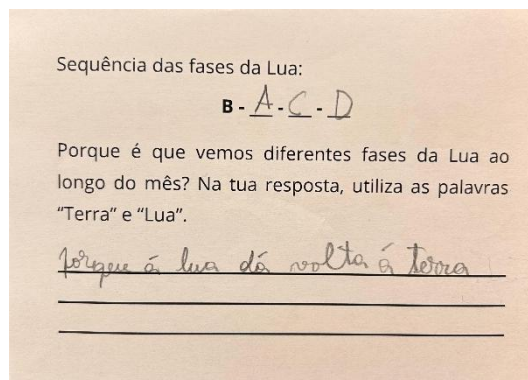 Sequência das fases da Lua:
B - A - C - D
Porque é que vemos diferentes fases da Lua ao
longo do mês? Na tua resposta, utiliza as palavras
“Terra” e “Lua”.
porque á lua dá volta á terra